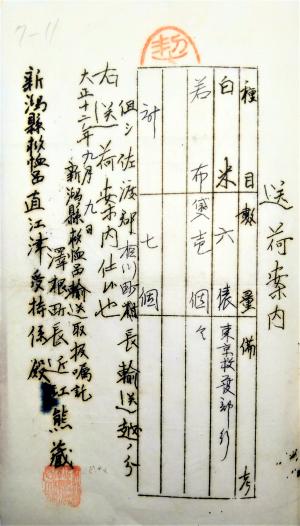 送荷案内
種目 数量 備考
白米 六俵 東京救護部行
若布 叺壱個 〃
計 七個
但シ佐渡郡相川町村長輸送越ノ分
右送荷案内仕候也
大正十二年九月九日
新潟縣救恤品輸送取扱嘱託
澤根町長 近江熊蔵
新潟縣救恤品直江津受持係殿
7-11